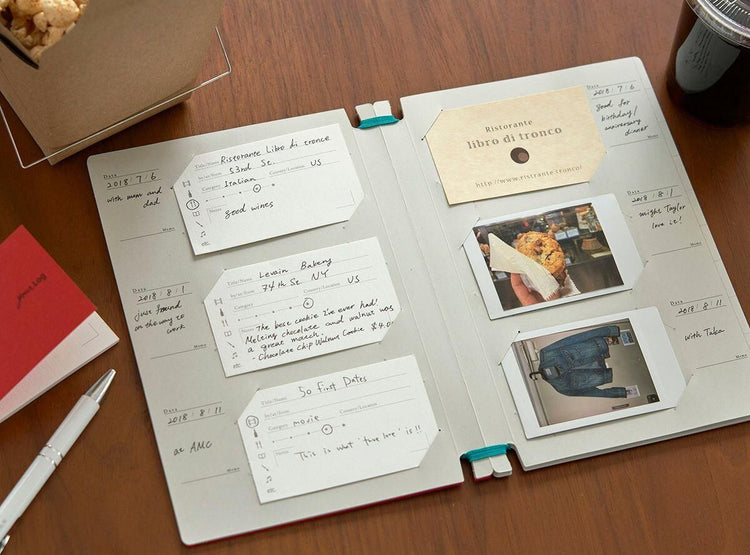 Date
2018/7/6
with mum and
dad
Memo
Title/Name Ristorante Libro di tronco
by/at/from 53rd St.
Category Italian Country/Location US
Notes
good wines
etc.
Date
2018/8/1
just found
on the way to
work
Memo
Title/Name Levain Bakery
by/at/from 74th St. NY
Category Country/Location US
Notes The best cookie I've ever had!
Melting chocolate and walnut was
a great match.
- Chocolate Chip Walnut Cookie $4.0
etc.
Date
2018/8/11
at AMC
Memo
Title/Name 50 First Dates
by/at/from
Category movie Country/Location
Notes This is what 'true love' is!!
etc.
Ristorante
libro di tronco
http://www.ristrante.tronco/
Date
2018/7/6
good for
birthday/
anniversary
dinner
Memo
Date
2018/8/1
might Taylor
love it!
Memo
Date
2018/8/11
with Taka
Memo
Log